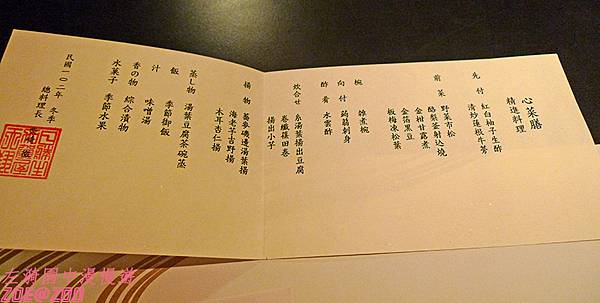 心菜膳
精進料理
先付 紅白柚子生酢
清炒蓮根牛蒡
前菜 野菜市松
酪梨釜射込燒
金柑甘露煮
金箔黑豆
板梅凍松葉
椀 雜煮椀
向付 蒟蒻刺身
酢肴 水雲酢
炊合せ 糸湯葉揚出豆腐
卷纖篠田卷
揚出小芋
揚物 蕎麥磯邊湯葉揚
海老芋吉野揚
木耳杏仁揚
蒸し物 湯葉豆腐茶碗蒸
飯 季節御飯
汁 味噌湯
香の物 綜合漬物
水菓子 季節水果
民國一〇二年 冬季
總料理長
左營園中漫慢遊
ZOE@ZOO